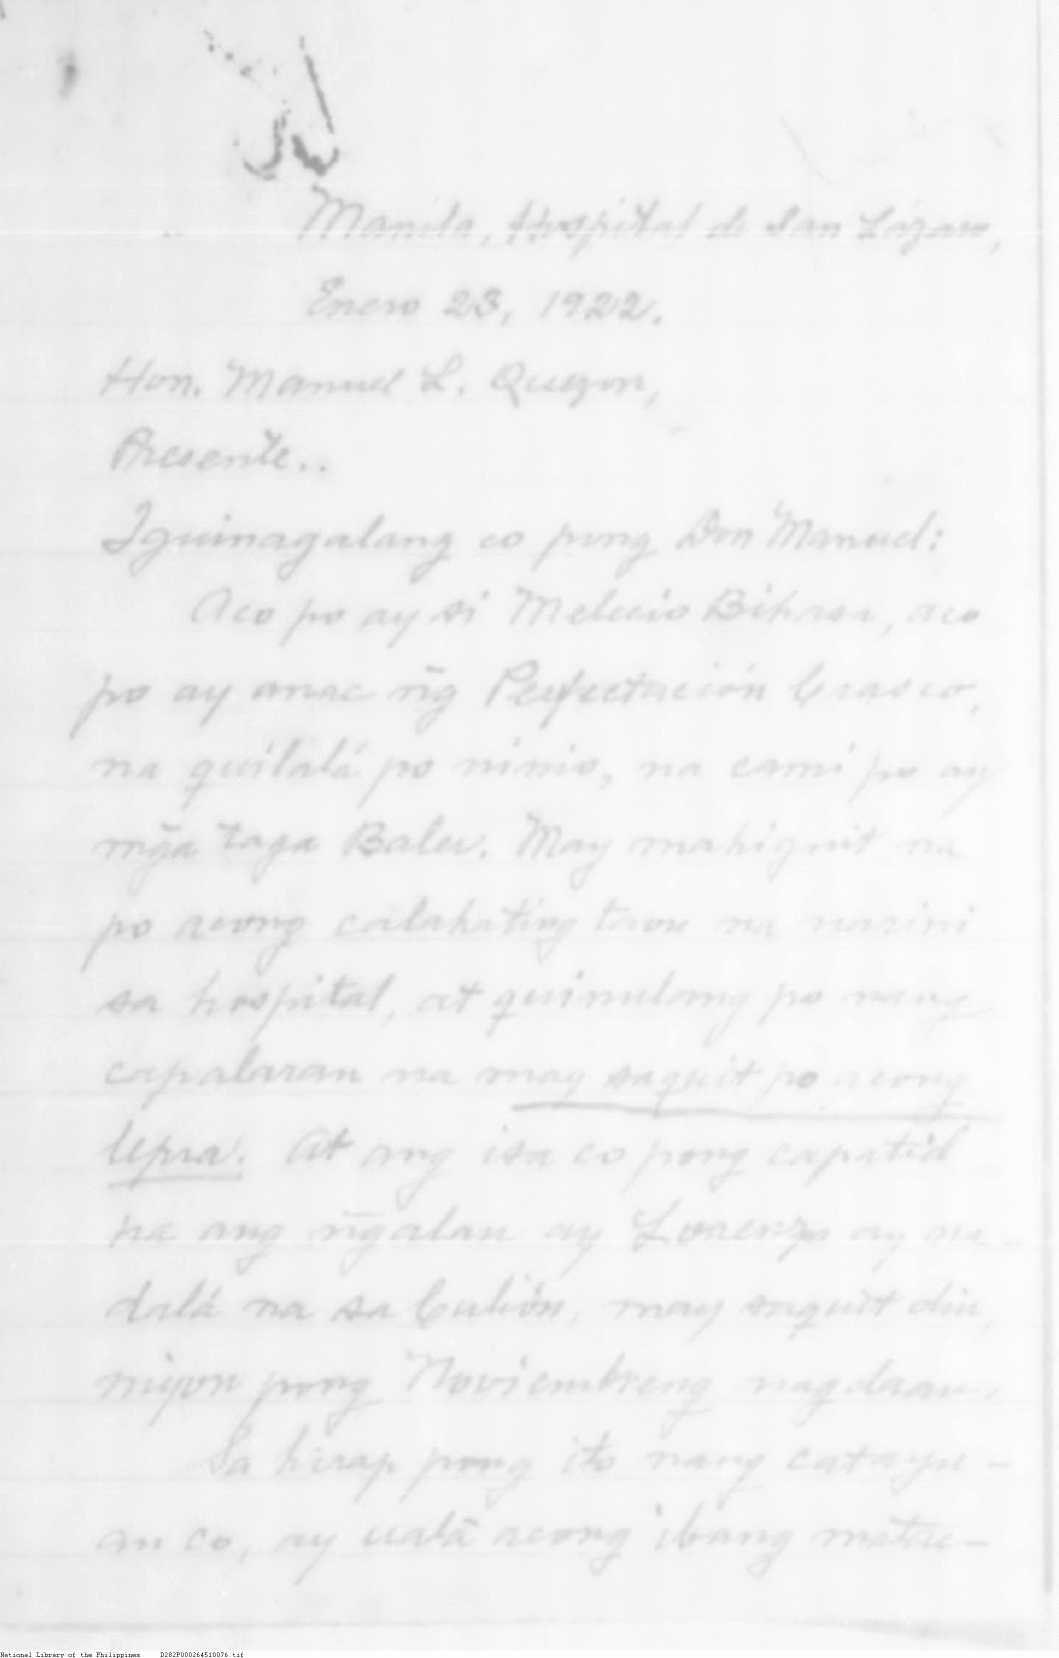 Manila, Hospital de San Lázaro,
Enero 23, 1922.
Hon. Manuel L. Quezon,
Presente..
Iguinagalang co pong Don Manuel:
Aco po ay si Melecio Bihasa, aco
po ay anac ñg Perfectación Crasco,
na quilalá po ninio, na cami po ay
mg̃a taga Baler. May mahiguit na
po acong calahating taon na narini
sa hospital, at quinulang po nang
capalaran na may saquit po acong
lepra. At ang isa co pong capatid
na ang ñgalan ay Lorenzo ay na-
dalá na sa Culión, may saquit din,
niyon pong Noviembreng nagdaan.
Sa hirap pong ito nang catayu-
an co, ay ualâ acong ibang matu-
National Library of the Philippines D282P000264510076.tif